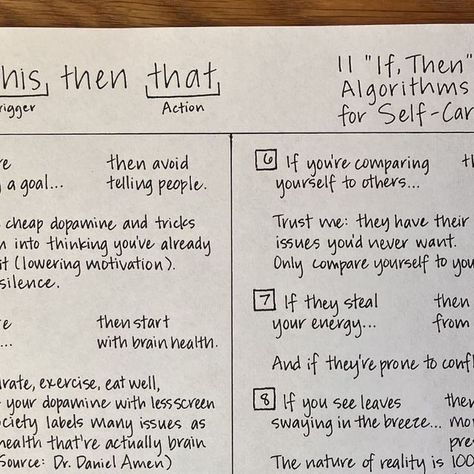 this, then that
Trigger Action
11 "If, Then"
Algorithms
for Self-Care
then avoid
a goal... telling people.
cheap dopamine and tricks
into thinking you've already
it (lowering motivation).
silence.
then start
... with brain health.
exercise, eat well,
your dopamine with less screen
society labels many issues as
health that're actually brain
Source: Dr. Daniel Amen)
6 If you're comparing
yourself to others...
Trust me: they have their
issues you'd never want.
Only compare yourself to
7 If they steal then
your energy... from
And if they're prone to
8 If you see leaves
swaying in the breeze...
The nature of reality is